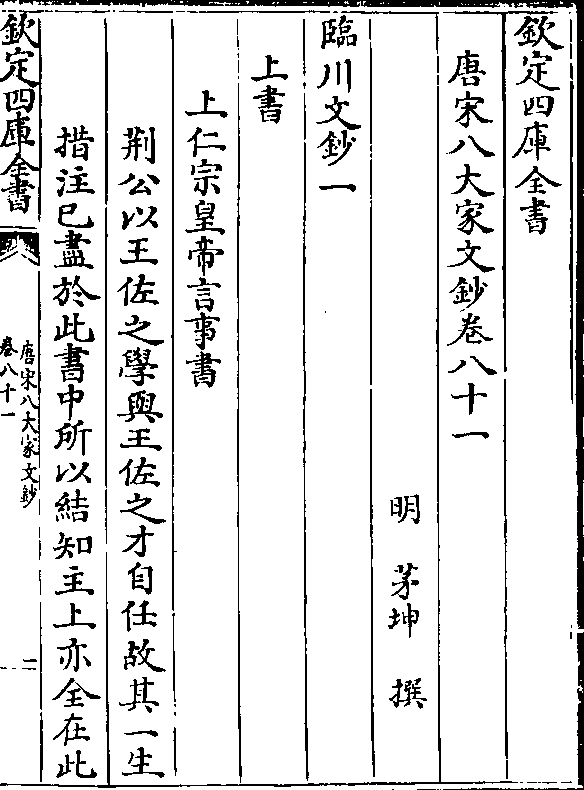 欽定四庫全書
唐宋八大家文鈔卷八十一
明 茅坤 撰
臨川文鈔一
上書
上仁宗皇帝言事書
荆公以王佐之學與王佐之才自任故其一生
措注已盡於此書中所以結知主上亦全在此
欽定四庫全書
唐宋八大家文鈔
卷八十一
二